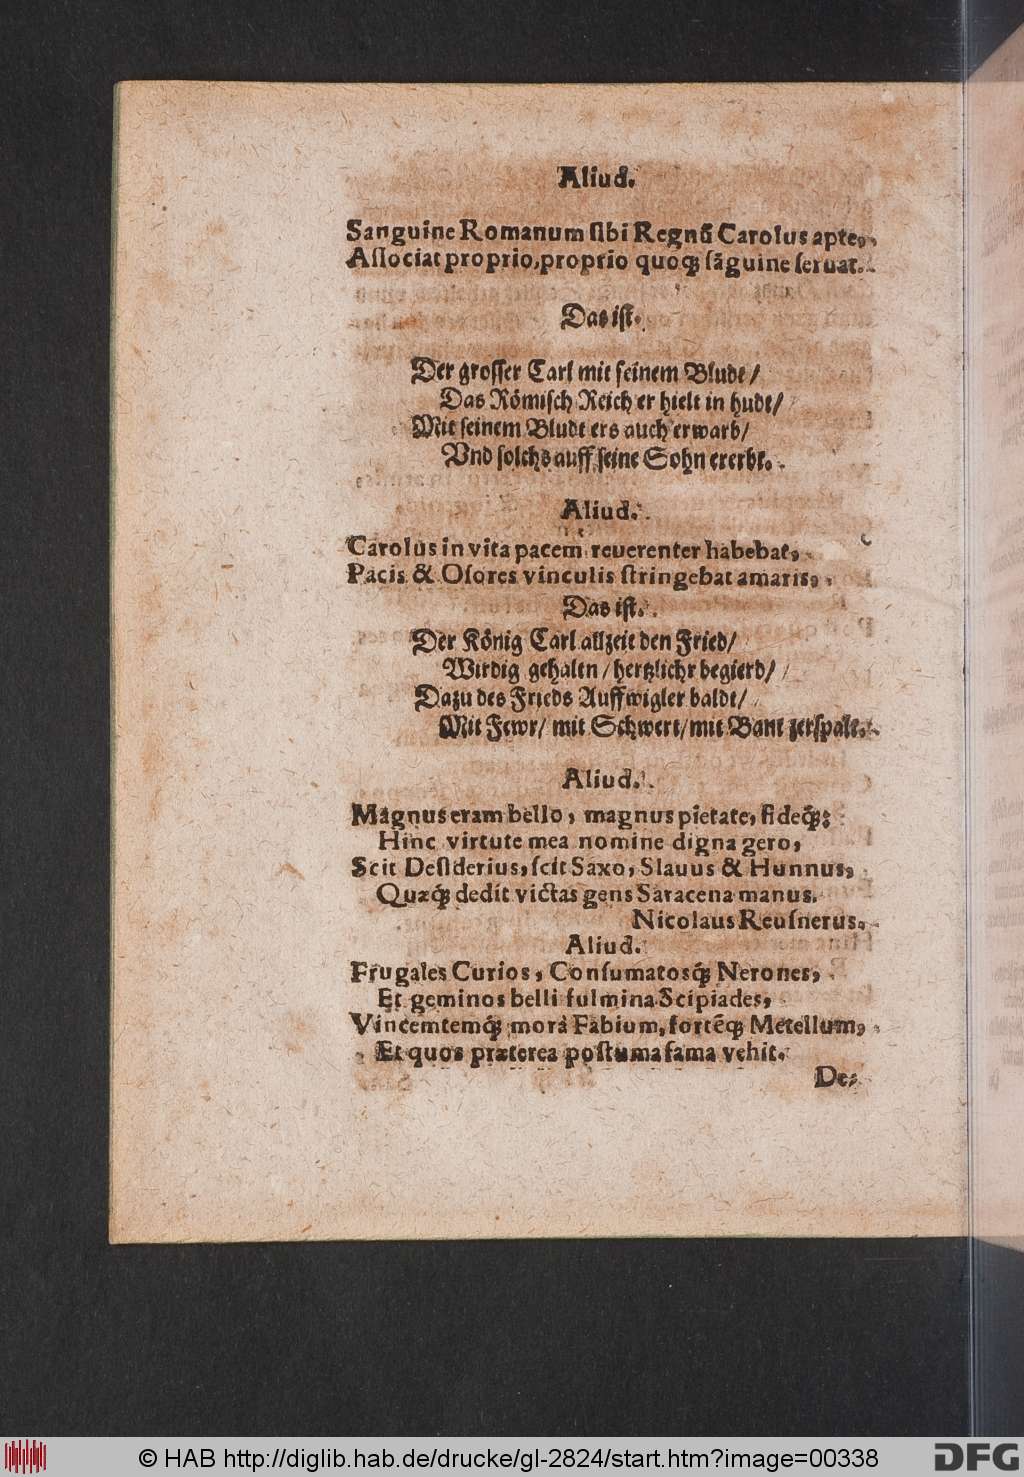 Aliud.
Sanguine Romanum ſibi Regnũ Carolus apte,
Aſſociat proprio, proprio quoq; ſãguine ſeruat.
Das iſt.
Der groſſer Carl mit ſeinem Bludt/
Das Römiſch Reich er hielt in hudt/
Mit ſeinem Bludt ers auch erwarb/
Vnd ſolchs auff ſeine Sohn ererbt.
Aliud.
Carolus in vita pacem reuerenter habebat,
Pacis & Oſores vinculis ſtringebat amaris,
Das iſt.
Der König Carl allzeit den Fried/
Wirdig gehaltn/ hertzlichr begierd/
Dazu des Frieds Auffwigler baldt/
Mit Fewr/ mit Schwert/ mit Bant zerſpalt.
Aliud.
Magnus eram bello, magnus pietate, fideq́;;
Hinc virtute mea nomine digna gero,
Scit Deſiderius, ſcit Saxo, Slauus & Hunnus,
Quæq́; dedit victas gens Saracena manus.
Nicolaus Reuſnerus.
Aliud.
Frugales Curios, Conſumatosq́; Nerones,
Et geminos belli fulmina Scipiades,
Vincemtemq́; morâ Fabium, fortẽq; Metellum,
Et quos præterea poſtuma fama vehit.
De-
© HAB http://diglib.hab.de/drucke/gl-2824/start.htm?image=00338
DFG